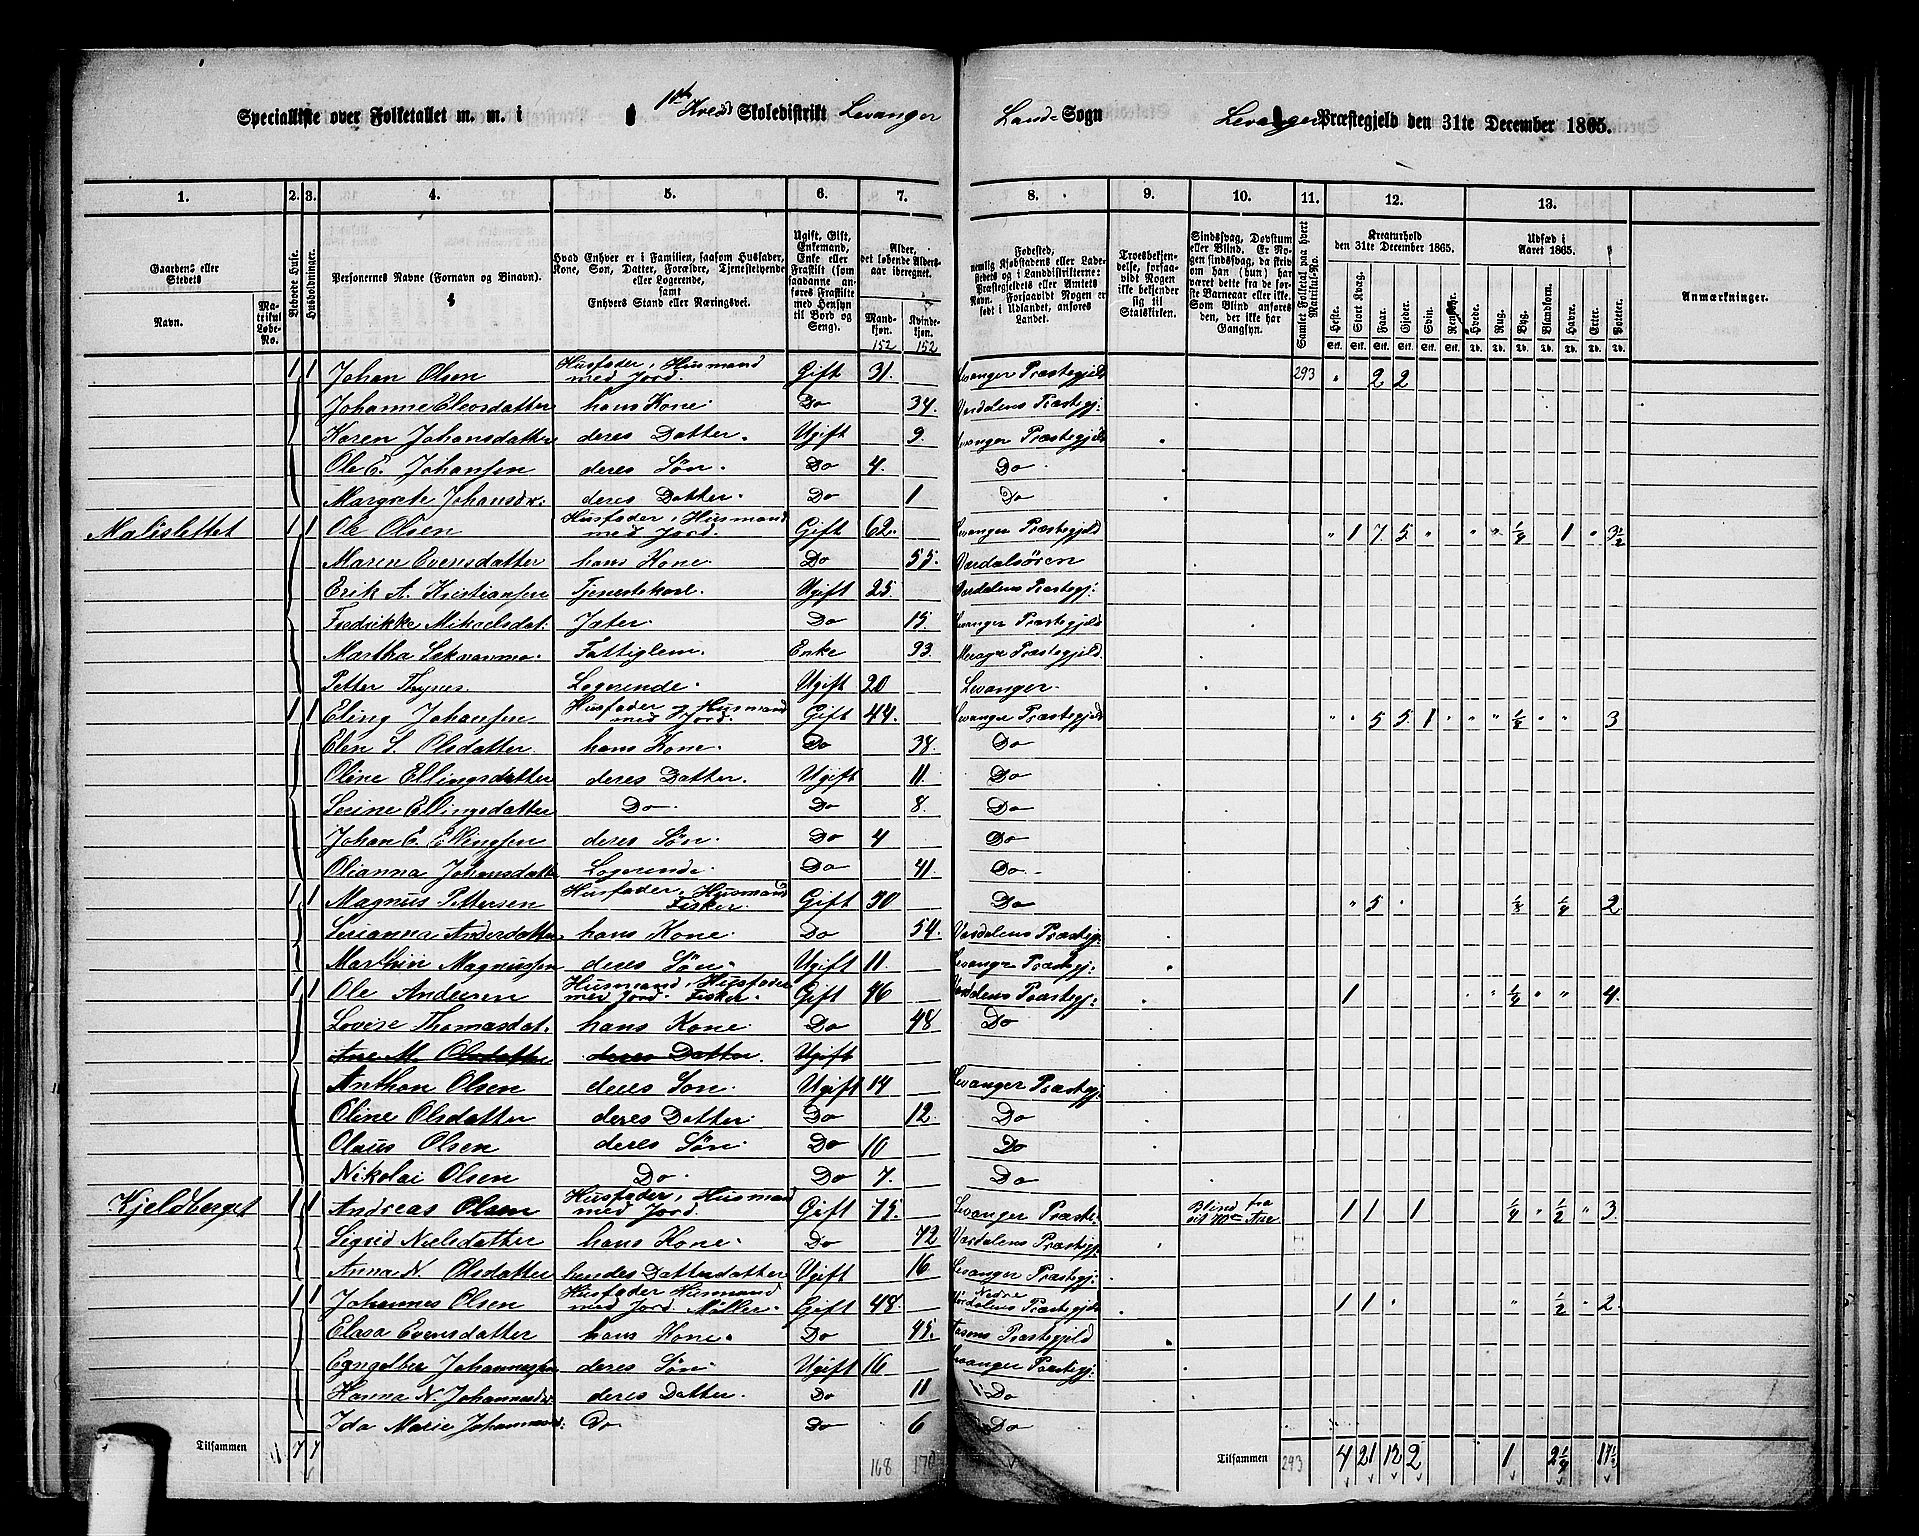 Specialliste over Folketallet m. m. i 1ste Kreds Skoledistrikt Levanger Lande Sogn Levanger Præstegjeld den 31te December 1865.
1. 2. 3. 4. 5. 6. 7. 8. 9. 10. 11. 12. 13.
Gaardens eller Stedets Navn. Matrikul Løbe-No. Beboede Huse. Husholdninger. Personernes Navne (Fornavn og Binavn).
Hvad Enhver er i Familien, saasom Husfader, Kone, Søn, Datter, Forældre, Tjenestetyende eller Logerende, samt Enhvers Stand eller Næringsvei.
Ugift, Gift, Enkemand, Enke eller Fraskilt (som saadanne anføres Fraskilte med Hensyn til Bord og Seng).
Alder, det løbende Alders-aar iberegnet. Mandkjøn. Kvindekjøn.
152 152
Fødested, nemlig Kjøbstadens eller Ladestedets og i Landdistrikterne: Præstegjeldets eller Amtets Navn. Forsaavidt Nogen er født i Udlandet, anføres Landet.
Troesbekjendelse, forsaavidt Nogen ikke bekjender sig til Statskirken.
Sindssvag, Døvstum eller Blind. Er Nogen sindssvag, da skriv om han (hun) har været dette fra de første Barneaar eller ikke. Som Blind anføres den, der ikke har Gangsyn.
Samlet Folketal paa hvert Matrikul-No.
Kreaturhold den 31te December 1865. Heste. Stort Kvæg. Faar. Gjeder. Svin. Rensdyr.
Udsæd i Aaret 1865. Hvede. Rug. Byg. Blandkorn. Havre. Erter. Poteter.
Anmærkninger.
1 1 Johan Olsen Husfader, Husmand med Jord. Gift 31. Levanger Præstegjeld 293 " 2 2
Johanne Eleosdatter hans Kone. Do 34. Værdalens Præstegj:
Karen Johansdatter deres Datter. Ugift 9. Levanger Præstegjeld
Ole E. Johansen deres Søn. Do 4. Do
Margrete Johansdr. deres Datter. Do 1 Do
Malislettet 1 1 Ole Olsen Husfader, Husmand med Jord. Gift 62. Levanger Præstegjeld " 1 7 5 " " " 1/4 1 " 3 1/2
Maren Evensdatter hans Kone. Do 55. Værdalsören
Erik A. Kristiansen Tjenestekarl. Ugift 25. Værdalens Præstegj:
Fredrikke Mikaelsdat. Jæter. Do 15. Levanger Præstegjeld
Martha Fattiglem. Enke 93. Præstegjeld.
Petter Logerende. Ugift 20 Levanger.
1 1 Eling Johansen Husfader og Husmand med Jord. Gift 44. Levanger Præstegjeld " " 5 5 1 " " " 1/4 " " 3
Elen S. Olsdatter. hans Kone. Do 38. Do
Oline Ellingsdatter deres Datter. Ugift 11. Do
Serine Ellingsdatter Do. Do 8. Do
Johan E. Ellingsen deres Søn. Do 4 Do
Olianna Johansdattr Logerende. Do 41. Do.
1 1 Magnus Pettersen Husfader, Husmand Fisker. Gift 30 Do " 5 " 1/8 1/4 2
Serianna Andersdatter hans Kone. Do 54. Værdalens Præstegj.
Marthin Magnussen deres Søn. Ugift 11. Levanger Præstegj:
1 1 Ole Andersen Husmand, Husfader med Jord. Fisker. Gift 46 Værdalens Præstegj: 1 " " 1/4 " " 4.
Lovise Thomasdat. hans Kone. Do 48 Do
Ane M. Olsdatter deres Datter. Ugift
Anthon Olsen deres Søn. Ugift 14 Levanger Præstegj:
Oline Olsdatter deres Datter. Do 12. Do
Olaus Olsen deres Søn. Do 10 Do
Nikolai Olsen Do. Do 7. Do
Kjeldberget 1 1 Andreas Olsen Husfader, Husmand med Jord. Gift 75. Levanger Præste. Blind fra sit 70de Aar 1 1 1 1/4 " 1/2 " 3.
Sigrid Nielsdatter hans Kone. Do 72 Værdalens Præstegj:
Anna N. Olsdatter hendes Datterdatter Ugift 16 Levanger Præstegj:
1 1 Johannes Olsen Husfader Husmand med Jord. Møller. Gift 48. Nedre Præstegjeld 1 1 " " 1/2 " 2.
Elasa Evensdatter hans Kone. Do 45. Præstegjeld
Johannessen deres Søn. Ugift 16 Levanger Præstegj:
Hanna N. Johannesdr deres Datter. Do 11 Do
Ida Marie Do Do 6 Do
Tilsammen 7 7 168 170 Tilsammen 293 4 21 13 2 1 2 1/4 17 1/2